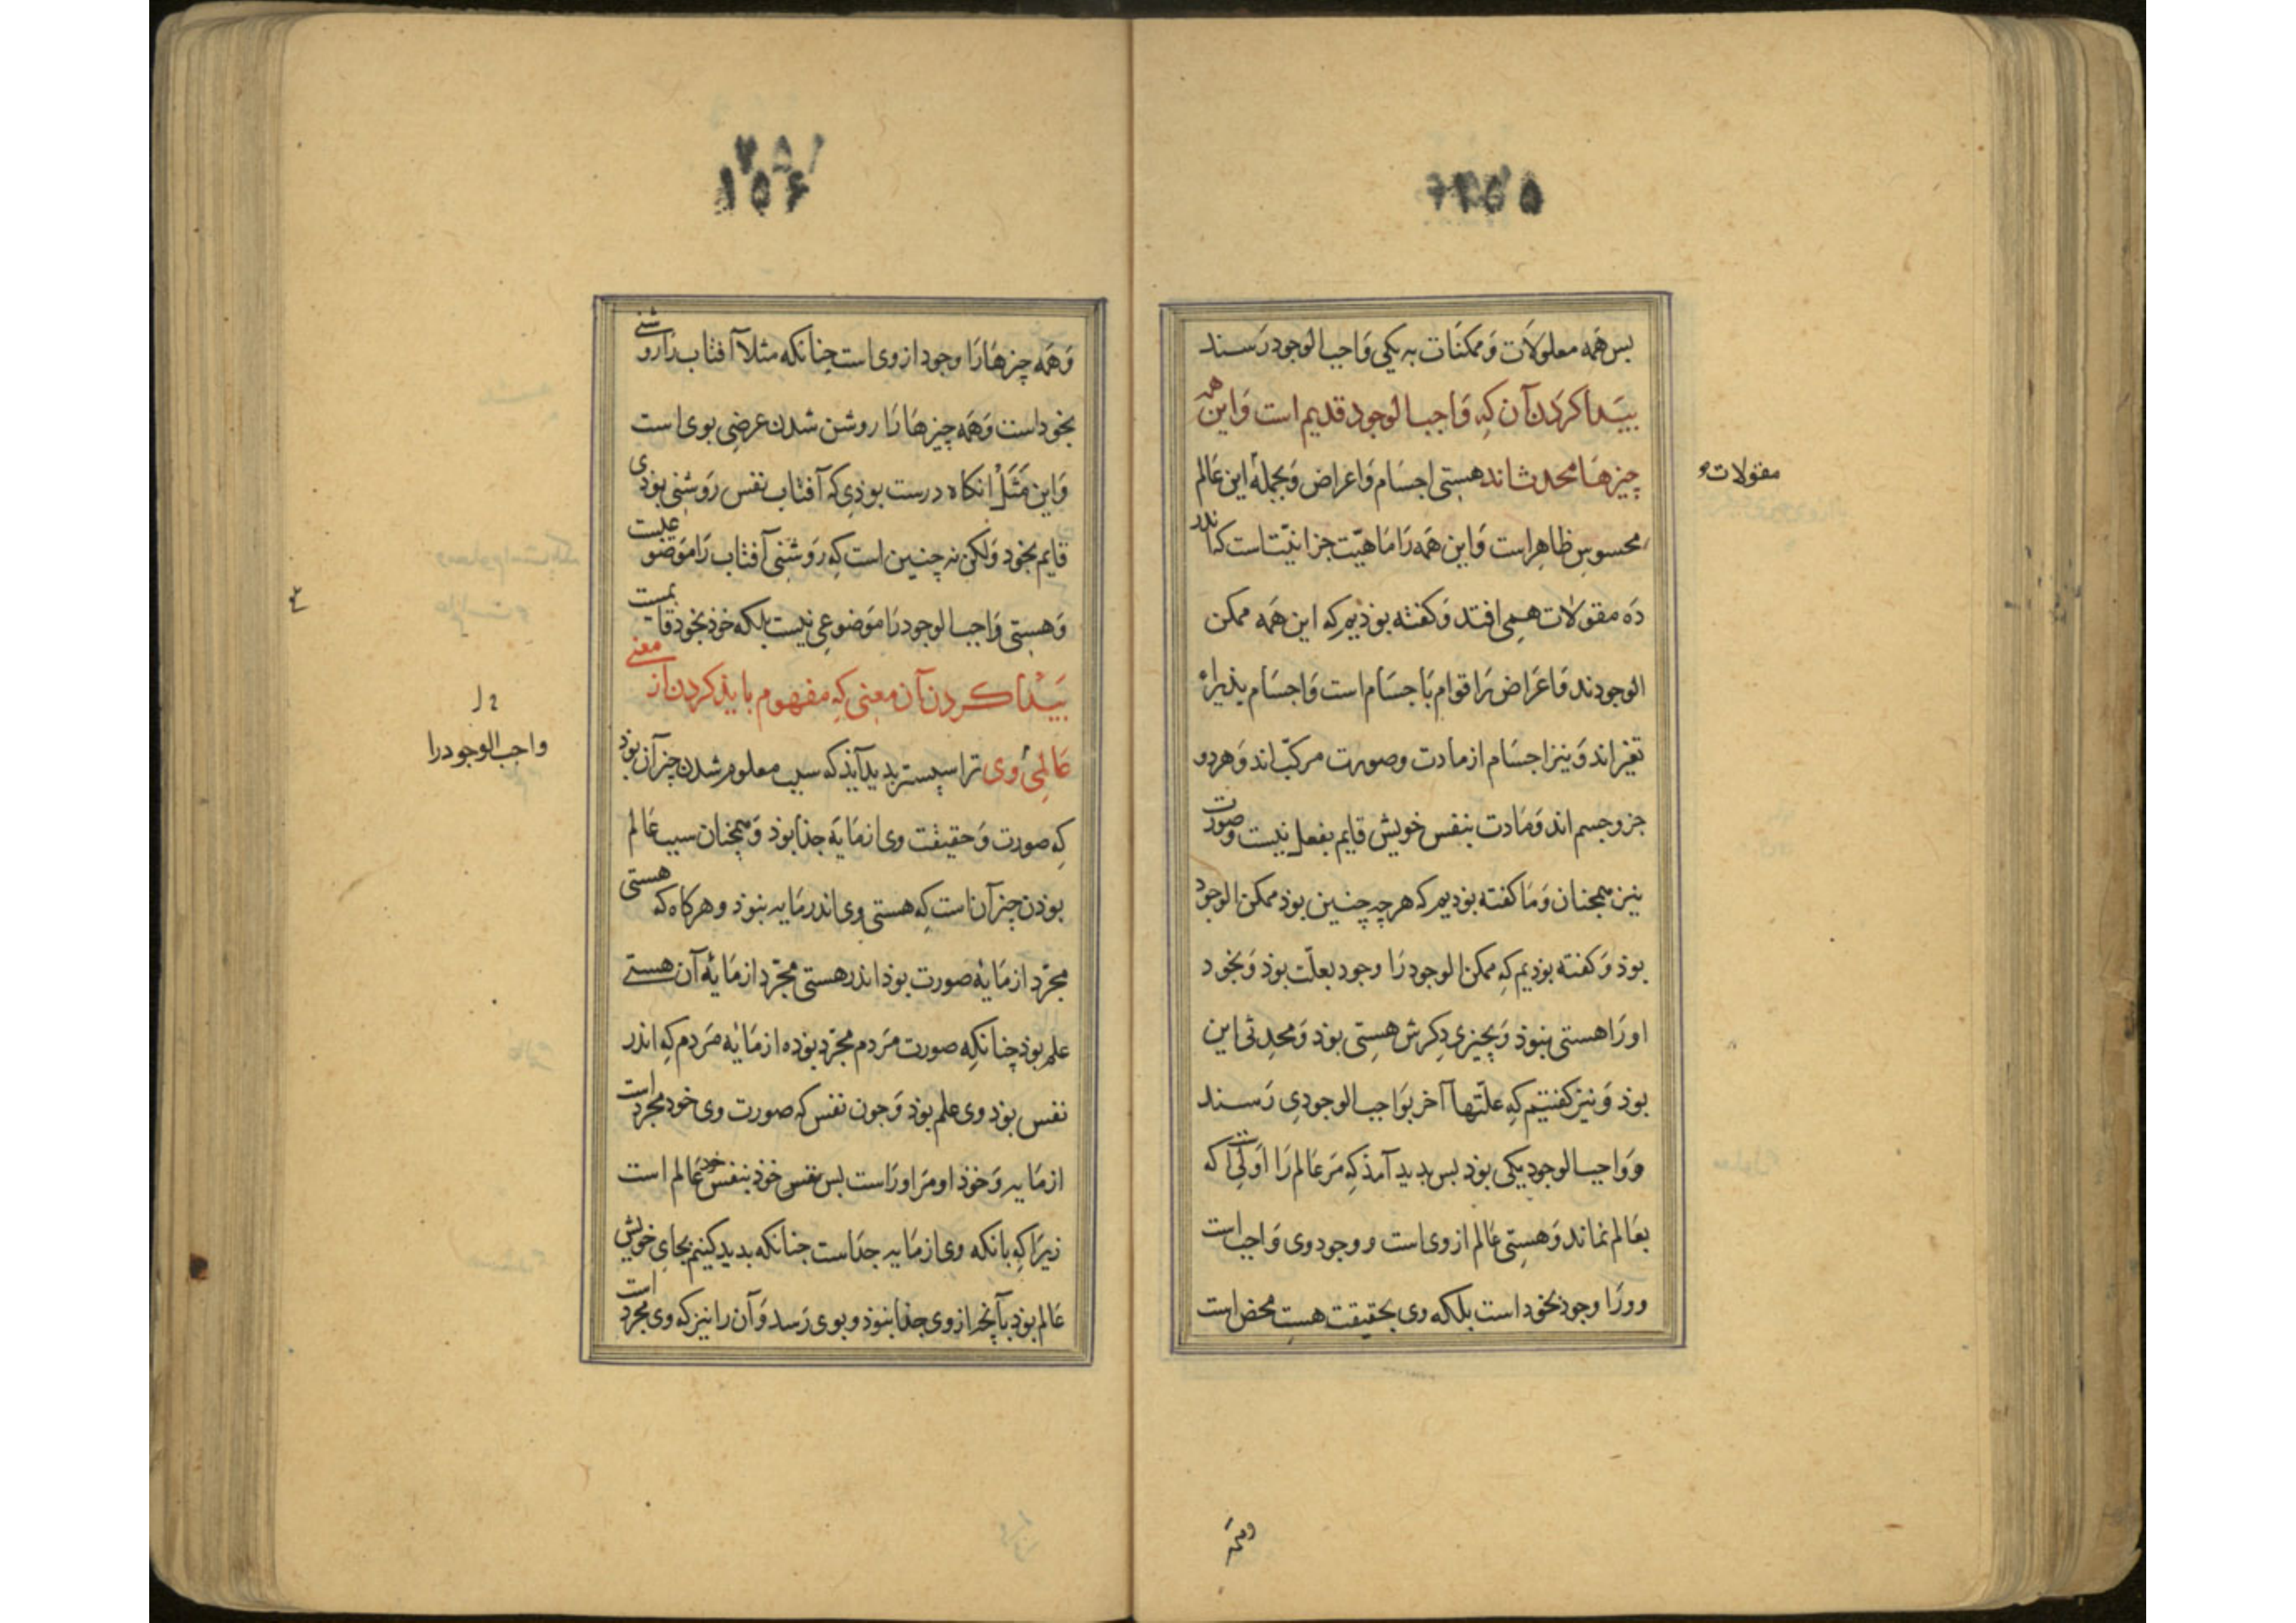 ۱۵۵
بس همه معلولَات وَممکنَات به یکی وَاجب الوجود رَسند
بیَدا کرَدن آن کِه وَاجب الوجود قدیم است وَاین همه
چیزهَا محدث‌اند هستی اجسَام وَاعراض وَبجملهٔ این عَالم
مقولات
محسوسِ ظاهِر است وَاین همَه رَا مَاهیّت جز انیّت است کاندر
دَه مقولات همی افتد وَکفته بوذیم که این همَه ممکن
الوجودند وَاعرَاض رَا قوام بَاجسَام است وَاجسَام پذیراء
تغیّر اند وَنیز اجسَام از مادت وصورت مرکبّ اند وَهر دو
جزو جسم اند وَمَادت بنفس خویش قایم بفعل نیست وصورت
نیز همجنان وَمَا کفته بودیم که هر چه چنین بوذ ممکن الوجود
بوذ وَکفته بوذیم کِه ممکن الوجود رَا وجود بعلّت بوذ وَبخود
او رَا هستی نبوذ وَبچیزی دِکرش هستی بوذ وَمحدِثی این
بوذ وَنیز کفتیم کِه علّتها آخر بوَاجب الوجودِی رَسند
ووَاجب الوجود یکی بوذ بس بدید آمذ کِه مَر عَالم رَا اوّلی است که
بعَالم نماند وَهستِی عَالم از وی است ووجود وی وَاجب است
وورَا وجود بخود است بلکه وی بحقیقت هست محض است
وهمه
۱۵۶
وَهمَه چیزهَا رَا وجود از وی است جنانکه مثلا آفتاب رَا روشنی
بخود است وَهمَه چیزهَا رَا روشن شدن عرضِی بوی است
وَاین مَثَلْ انکاه درست بوذِی که آفتاب نفس رَوشنی بوذی
قایم بخود وَلکن نه چنین است کِه رَوشنِی آفتاب رَا مَوضوعیست
وَهستِی وَاجب الوجود رَا مَوضوعِی نیست بلکه خوذ بخود قایمست
بیَدا کردن آن معنِی کِه مفهوم بایذ کردن از معنی
واجب الوجود را
عَالِمیٔ وی ترا سپستر بدید آیذ که سبب معلوم شدن چیز آن بوذ
کِه صورت وَحقیقت وی از مَایَه جذا بوذ وَهمجنان سبب عَالم
بوذن چیز آن است کِه هستِی وی اندر مَایه نبوذ وهرکاه که هستی
مجرّد از مَایَهٔ صورت بوذ اندر هستی مجرّد از مَایَهٔ آن هستی
علم بوذ چنانکِه صورت مَردم مجرّد بوذه از مَایَهٔ مَردم کِه اندر
نفس بوذ وی علم بوذ وَجون نفس که صورت وی خود مجرد است
از مَایه وَخوذ او مَر اورَاست بس نفس خوذ بنفس خود عَالم است
زیرَا کِه بانکه وی از مَایه جدَاست جنانکه بدید کنیم بجای خویش
عَالم بوذ بآنچه از وی جذا نبوذ وبوی رَسد وَآن را نیز که وی مجرد است